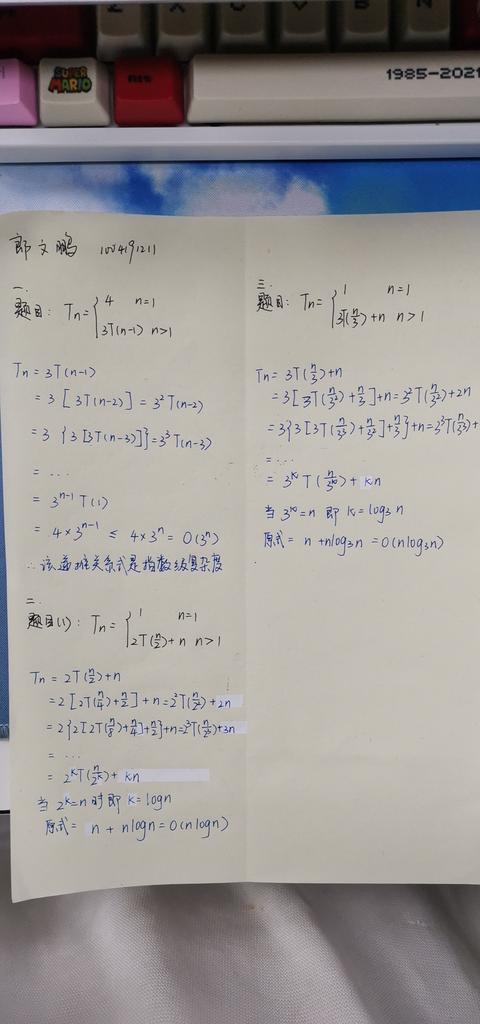 SUPER MARIO
1985-2021
郎文鹏 1004191211
一.
题目: Tn = { 4 n=1
3T(n-1) n>1
Tn = 3T(n-1)
= 3 [ 3T(n-2) ] = 3²T(n-2)
= 3 {3 [3T(n-3)]} = 3³T(n-3)
= ...
= 3ⁿ⁻¹ T(1)
= 4×3ⁿ⁻¹ ≤ 4×3ⁿ = O(3ⁿ)
∴ 该递推关系式是指数级复杂度
二.
题目(1): Tn = { 1 n=1
2T(n/2)+n n>1
Tn = 2T(n/2)+n
= 2 [2T(n/4)+n/2] + n = 2²T(n/2²)+2n
= 2{2[2T(n/8)+n/4]+n/2}+n = 2³T(n/2³)+3n
= ...
= 2ᵏT(n/2ᵏ)+ kn
当 2ᵏ=n 时即 k=logn
原式= n + nlogn = O(nlogn)
三.
题目: Tn = { 1 n=1
3T(n/3)+n n>1
Tn = 3T(n/3)+n
= 3[3T(n/3²)+n/3]+n = 3²T(n/3²)+2n
= 3{3[3T(n/3³)+n/3²]+n/3}+n = 3³T(n/3³)+
= ...
= 3ᵏ T(n/3ᵏ)+ kn
当 3ᵏ=n 即 k=log₃n
原式= n +nlog₃n = O(nlog₃n)